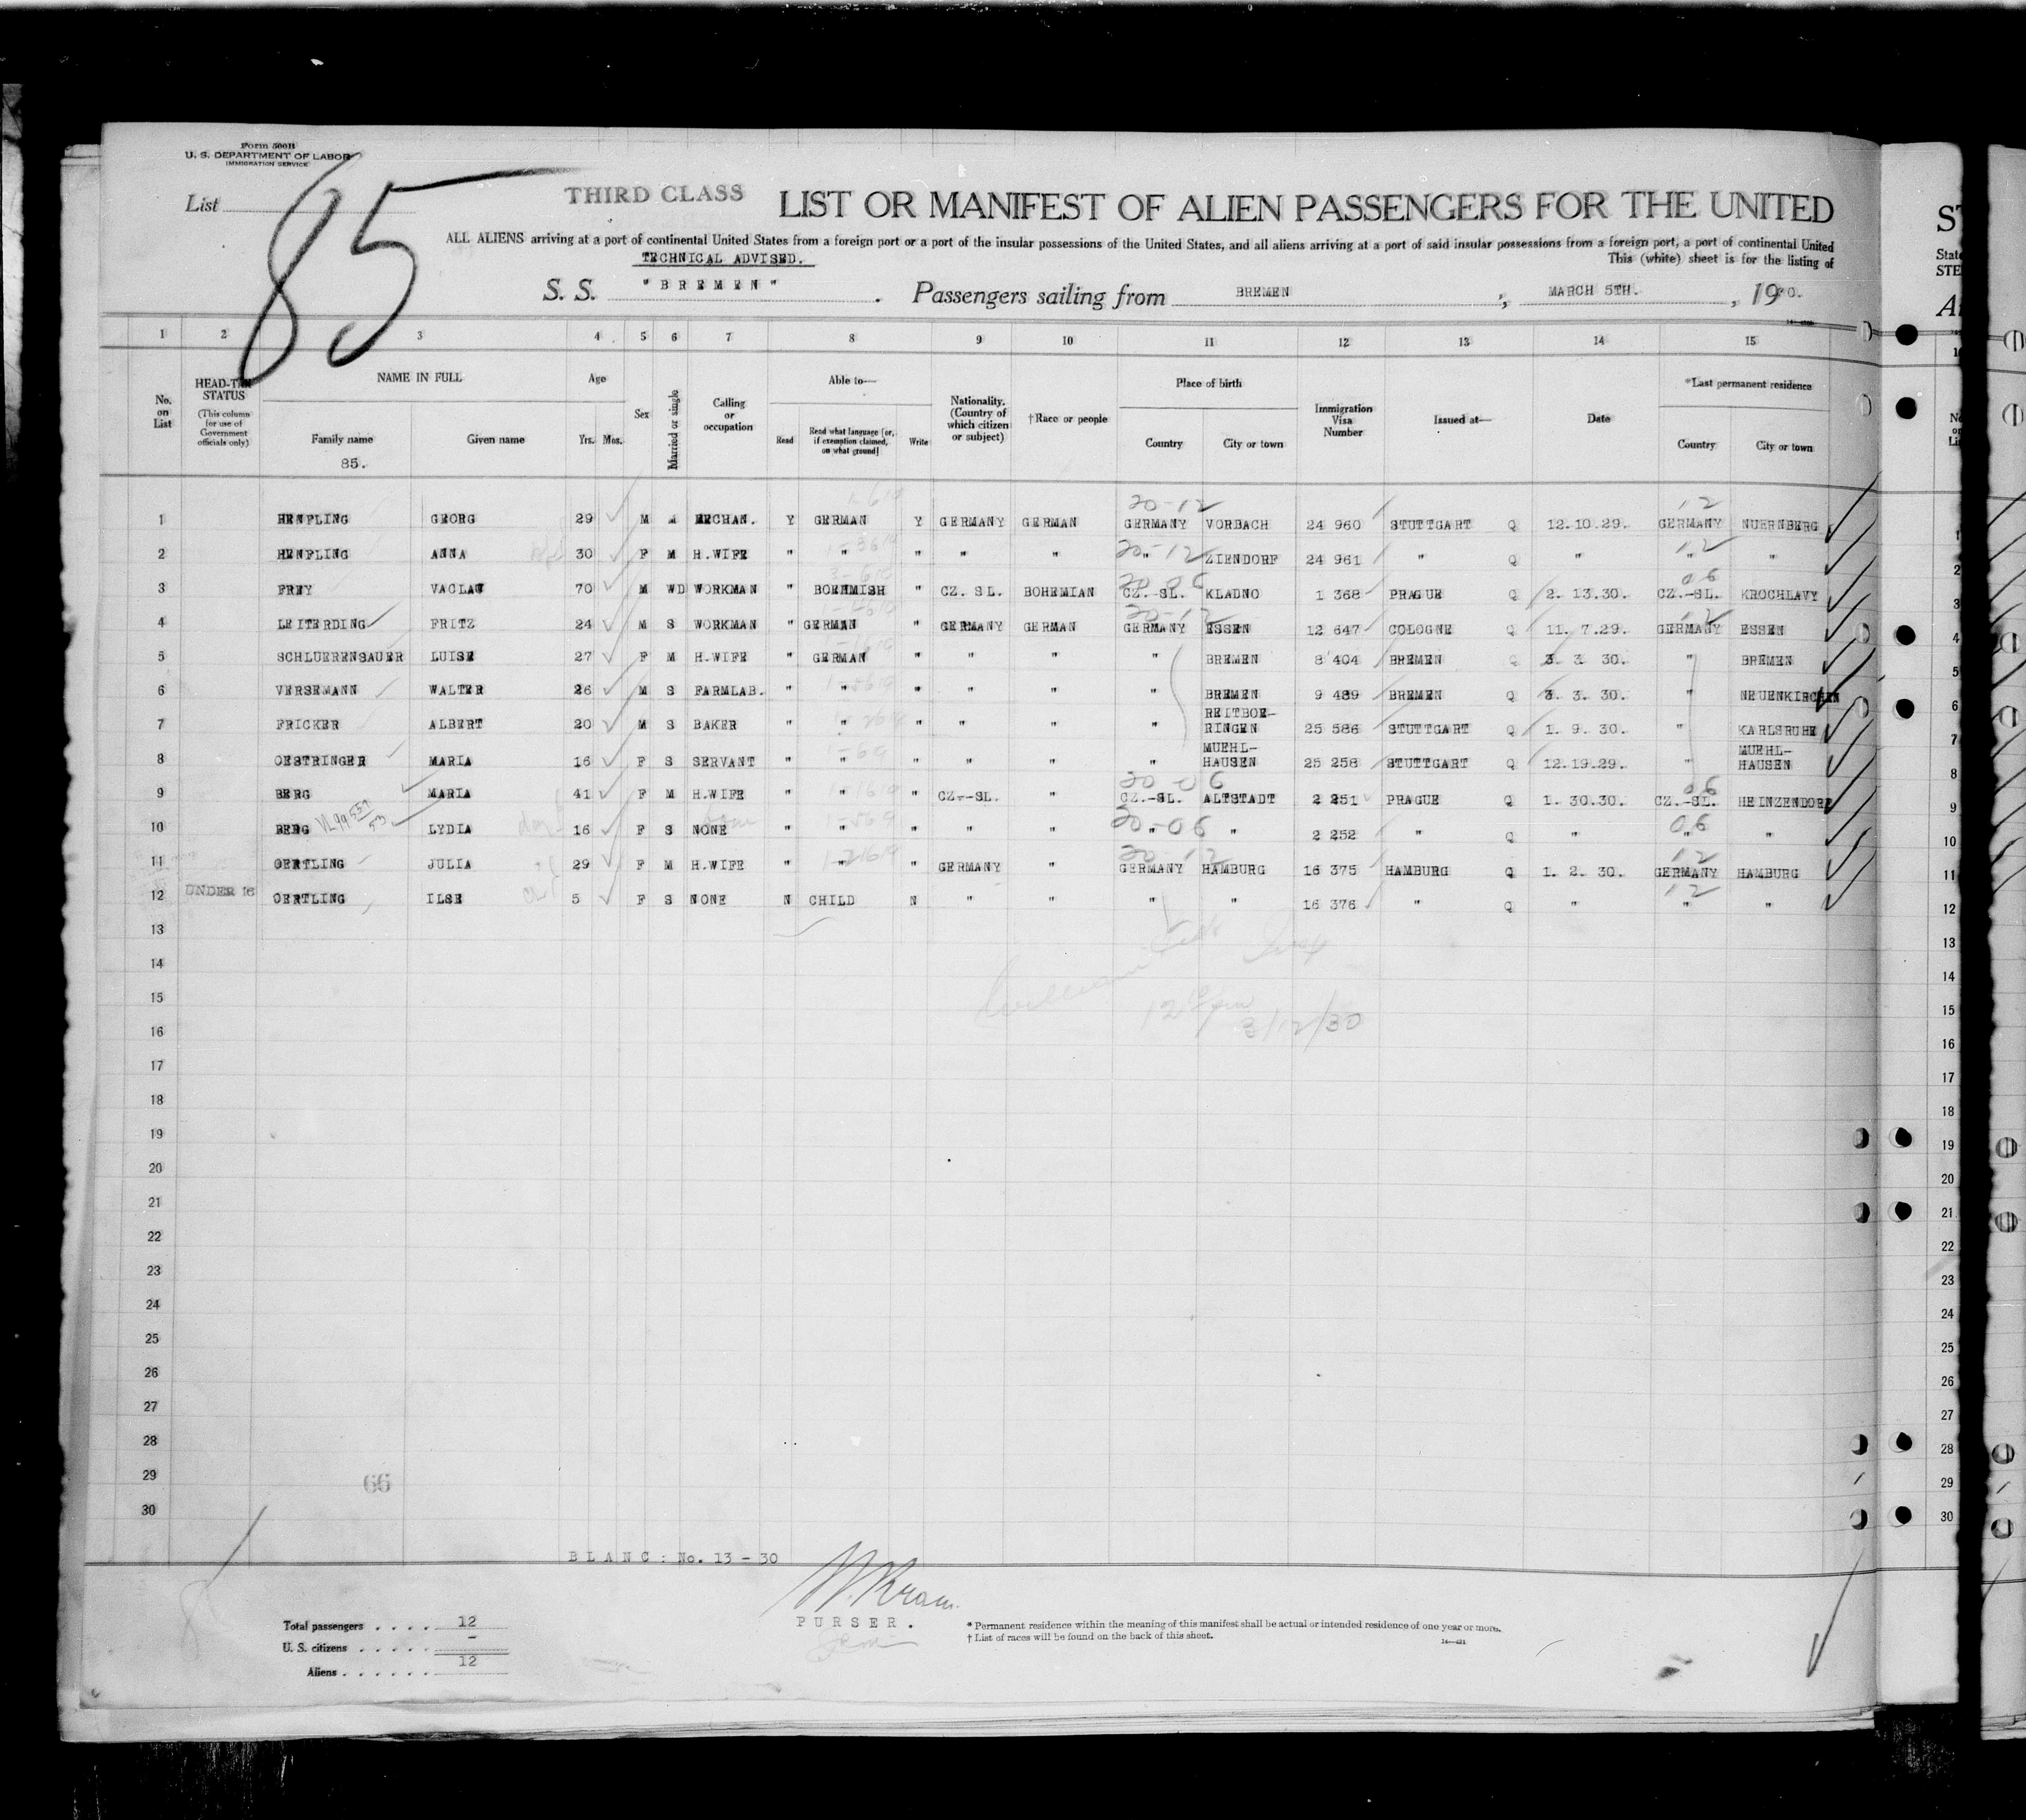 Form 500B
U. S. DEPARTMENT OF LABOR
IMMIGRATION SERVICE
List
85
THIRD CLASS LIST OR MANIFEST OF ALIEN PASSENGERS FOR THE UNITED
ALL ALIENS arriving at a port of continental United States from a foreign port or a port of the insular possessions of the United States, and all aliens arriving at a port of said insular possessions from a foreign port, a port of continental United
TECHNICAL ADVISED. This (white) sheet is for the listing of
S. S. "BREMEN". Passengers sailing from BREMEN, MARCH 5TH., 19
1 2 3 4 5 6 7 8 9 10 11 12 13 14 15
No. on List
HEAD-TAX STATUS (This column for use of Government officials only)
NAME IN FULL
Family name
85.
Given name
Age
Yrs. Mos.
Sex
Married or single
Calling or occupation
Able to—
Read
Read what language [or, if exemption claimed, on what ground]
Write
Nationality. (Country of which citizen or subject)
†Race or people
Place of birth
Country
City or town
Immigration Visa Number
Issued at—
Date
*Last permanent residence
Country
City or town
20-12 12
1 HENFLING GEORG 29 M M MECHAN. Y GERMAN Y GERMANY GERMAN GERMANY VORBACH 24 960 STUTTGART Q 12.10.29. GERMANY NUERNBERG
20-12 12
2 HENFLING ANNA 30 F M H.WIFE " " " " " " ZIENDORF 24 961 " Q " " "
20 06 06
3 FREY VACLAV 70 M WD WORKMAN " BOEHMISH " CZ. SL. BOHEMIAN CZ.-SL. KLADNO 1 368 PRAGUE Q 2. 13.30. CZ.-SL. KROCHLAVY
20-12 12
4 LEITERDING FRITZ 24 M S WORKMAN " GERMAN " GERMANY GERMAN GERMANY ESSEN 12 647 COLOGNE Q 11. 7.29. GERMANY ESSEN
5 SCHLUERENSAUER LUISE 27 F M H.WIFE " GERMAN " " " " BREMEN 8 404 BREMEN Q 3. 3. 30. " BREMEN
6 VERSEMANN WALTER 26 M S FARMLAB. " " " " " " BREMEN 9 489 BREMEN Q 3. 3. 30. " NEUENKIRCHEN
7 FRICKER ALBERT 20 M S BAKER " " " " " " REITBOE-RINGEN 25 586 STUTTGART Q 1. 9. 30. " KARLSRUHE
8 OESTRINGER MARIA 16 F S SERVANT " " " " " " MUEHL-HAUSEN 25 258 STUTTGART Q 12.19.29. " MUEHL-HAUSEN
20-06 06
9 BERG MARIA 41 F M H.WIFE " " " CZ.-SL. " CZ.-SL. ALTSTADT 2 251 PRAGUE Q 1. 30.30. CZ.-SL. HEINZENDORF
20-06 06
10 BERG LYDIA 16 F S NONE " " " " " " " 2 252 " Q " " "
20-12 12
11 OERTLING JULIA 29 F M H.WIFE " " " GERMANY " GERMANY HAMBURG 16 375 HAMBURG Q 1. 2. 30. GERMANY HAMBURG
12
12 UNDER 16 OERTLING ILSE 5 F S NONE N CHILD N " " " " 16 376 " Q " " "
13
14
15
16
3/12/30
17
18
19
20
21
22
23
24
25
26
27
28
29
66
30
BLANC: No. 13 - 30
PURSER.
Total passengers . . . . 12
U. S. citizens . . . . . –
Aliens . . . . . . 12
* Permanent residence within the meaning of this manifest shall be actual or intended residence of one year or more.
† List of races will be found on the back of this sheet.